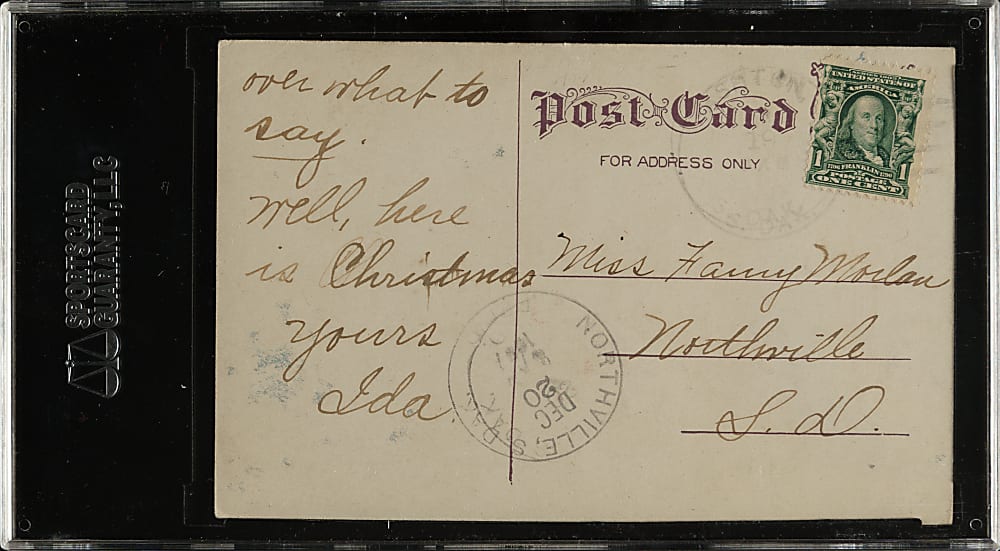 SPORTSCARD
GUARANTY, LLC
over what to
say.
Well, here
is Christmas
Yours
Ida
Post Card
FOR ADDRESS ONLY
SERIES 1902
UNITED STATES OF
AMERICA
1 1706 FRANKLIN 1790 1
POSTAGE
ONE CENT
Miss Fanny Morlan
Northville
S. D.
NORTHVILLE, S. DAK.
DEC
20